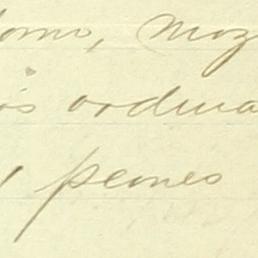 omo, moz
is ordina
y peones